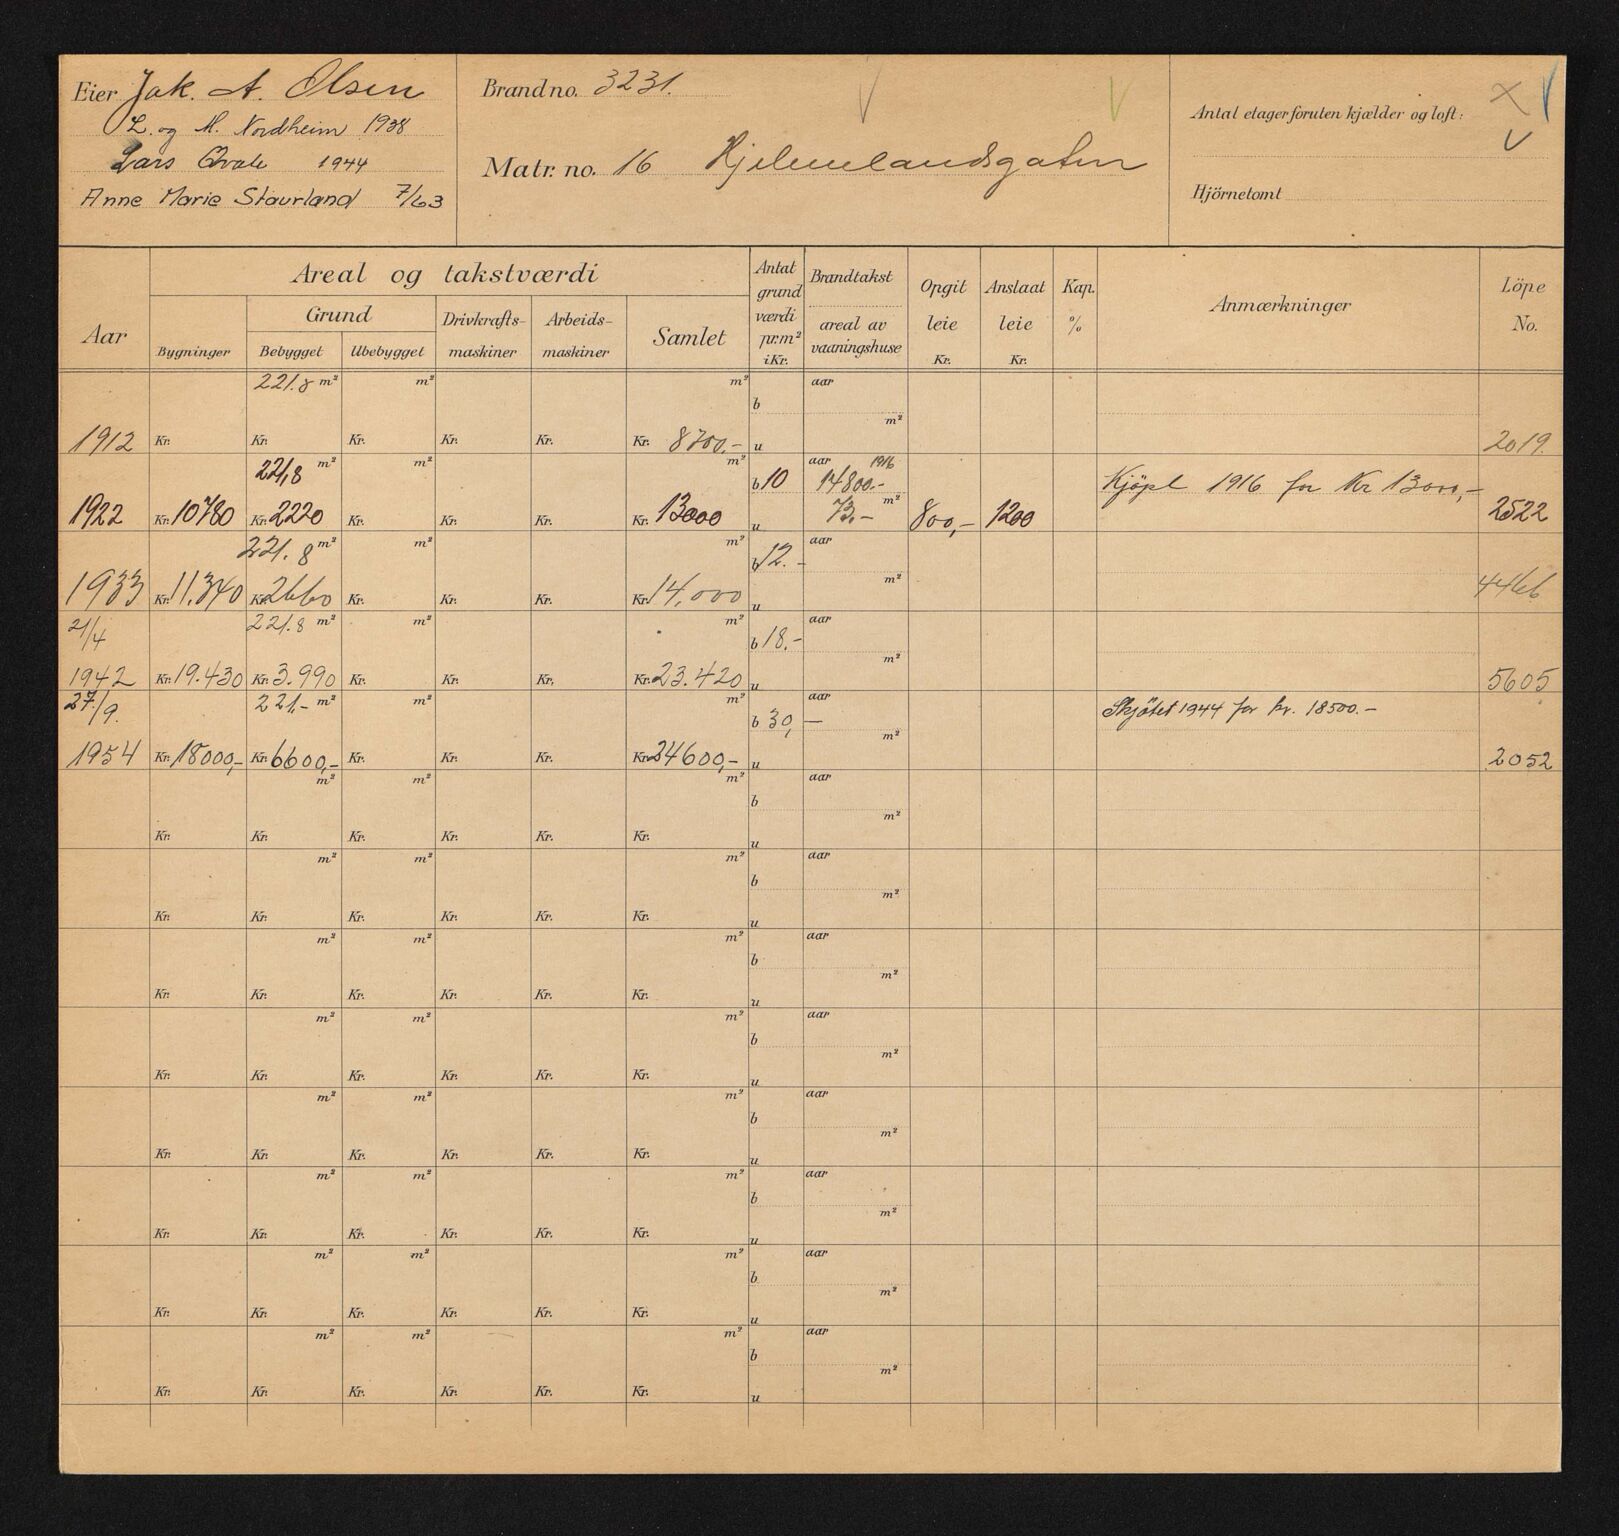 Eier Jak. A. Olsen
L. og M. Nordheim 1938
Lars Qvale 1944
Anne Marie Staurland 7/63
Brand no. 3231.
Matr. no. 16 Hjelmelandsgaten
Antal etager foruten kjælder og loft:
Hjörnetomt
Aar
Areal og takstværdi
Bygninger
Grund
Bebygget
Ubebygget
Drivkrafts-
maskiner
Arbeids-
maskiner
Samlet
Antat
grund
værdi
pr.m²
i Kr.
Brandtakst
areal av
vaaningshuse
Opgit
leie
Kr.
Anslaat
leie
Kr.
Kap.
%
Anmærkninger
Löpe
No.
221.8 m² m² m² aar
b
m²
1912 Kr. Kr. Kr. Kr. Kr. Kr. 8700.- u 2019.
221,8 m² m² m² aar 1916
b 10 14800.- Kjöpt 1916 for Kr 13000,-
m²
1922 Kr. 10780 Kr. 2220 Kr. Kr. Kr. Kr. 13000 u 73.- 800,- 1200 2522
221.8 m² m² m² aar
b 12.-
m²
1933 Kr. 11.340 Kr. 2660 Kr. Kr. Kr. Kr. 14.000 u 4466
21/4 221.8 m² m² m² aar
b 18.-
m²
1942 Kr. 19.430 Kr. 3.990 Kr. Kr. Kr. Kr. 23.420 u 5605
27/9. 221,- m² m² m² aar
b 30,— Skjötet 1944 for kr. 18500.-
m²
1954 Kr. 18000,- Kr. 6600,- Kr. Kr. Kr. Kr. 24600,- u 2052
m² m² m² aar
b
m²
Kr. Kr. Kr. Kr. Kr. Kr. u
m² m² m² aar
b
m²
Kr. Kr. Kr. Kr. Kr. Kr. u
m² m² m² aar
b
m²
Kr. Kr. Kr. Kr. Kr. Kr. u
m² m² m² aar
b
m²
Kr. Kr. Kr. Kr. Kr. Kr. u
m² m² m² aar
b
m²
Kr. Kr. Kr. Kr. Kr. Kr. u
m² m² m² aar
b
m²
Kr. Kr. Kr. Kr. Kr. Kr. u
m² m² m² aar
b
m²
Kr. Kr. Kr. Kr. Kr. Kr. u
m² m² m² aar
b
m²
Kr. Kr. Kr. Kr. Kr. Kr. u